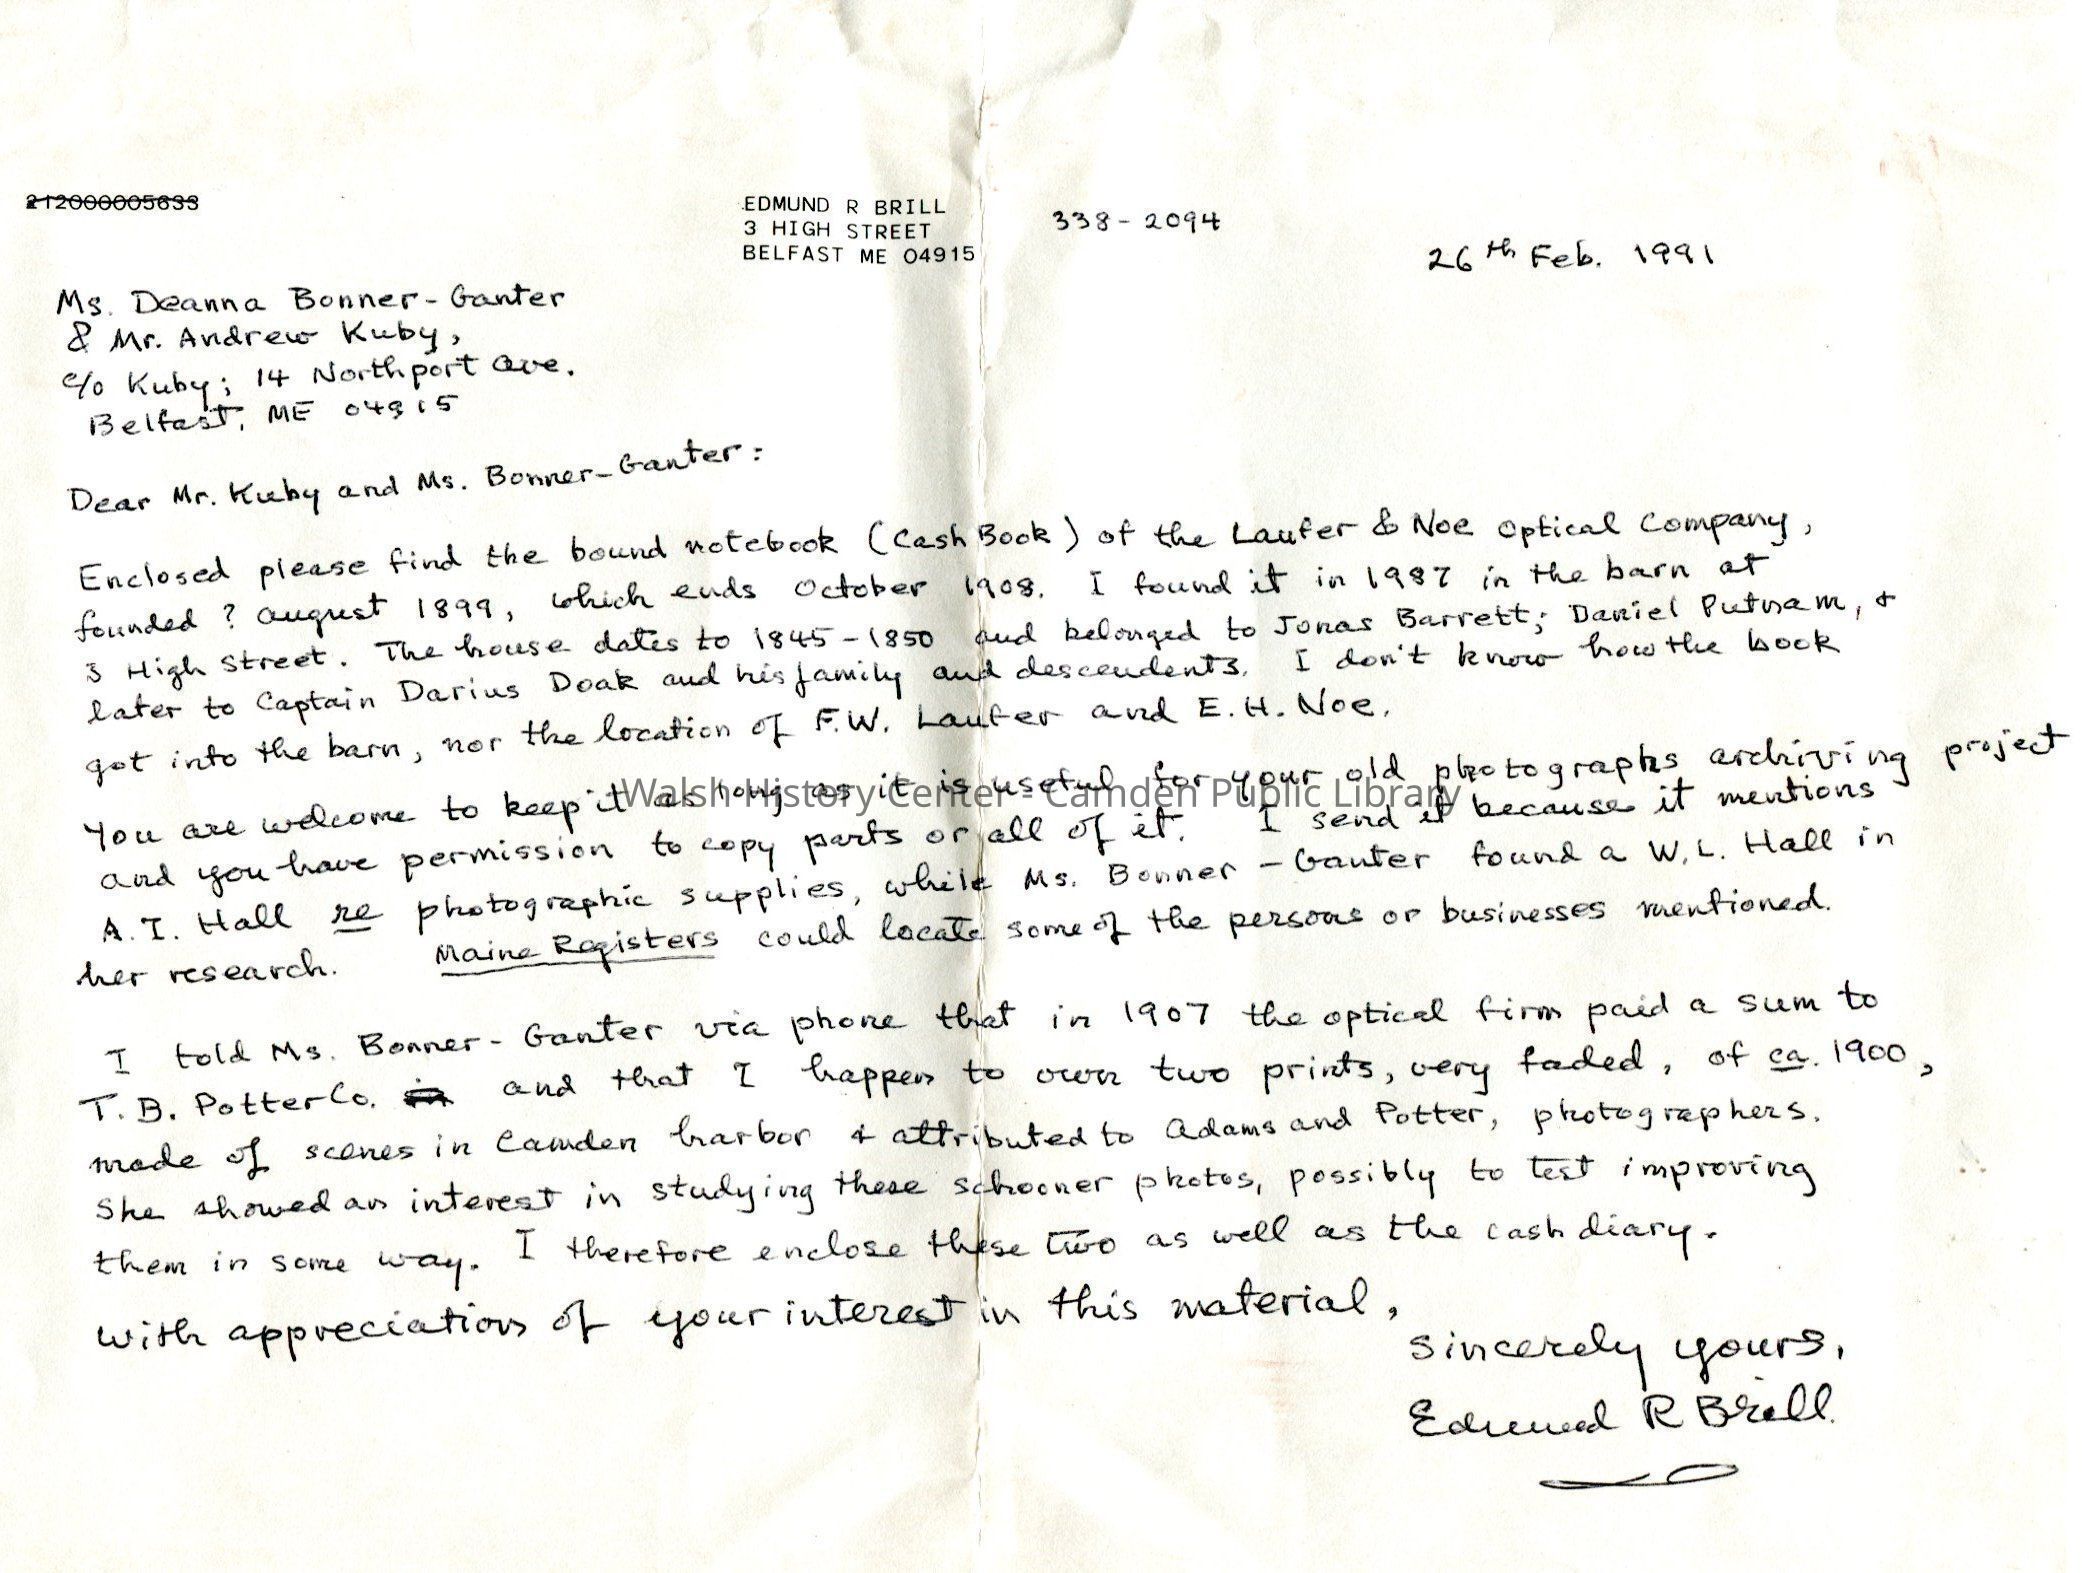 212000005633
EDMUND R BRILL
3 HIGH STREET
BELFAST ME 04915
338-2094
26th Feb. 1991
Ms. Deanna Bonner-Ganter
& Mr. Andrew Kuby,
c/o Kuby; 14 Northport Ave.
Belfast, ME 04915
Dear Mr. Kuby and Ms. Bonner-Ganter:
Enclosed please find the bound notebook (Cash Book) of the Laufer & Noe Optical Company,
founded ? August 1899, which ends October 1908. I found it in 1987 in the barn at
3 High Street. The house dates to 1845-1850 and belonged to Jonas Barrett; Daniel Putnam, &
later to Captain Darius Doak and his family and descendents. I don't know how the book
got into the barn, nor the location of F.W. Laufer and E.H. Noe.
You are welcome to keep it as long as it is useful for your old photographs archiving project
and you have permission to copy parts or all of it. I send it because it mentions
A.I. Hall re photographic supplies, while Ms. Bonner-Ganter found a W.L. Hall in
her research. Maine Registers could locate some of the persons or businesses mentioned.
I told Ms. Bonner-Ganter via phone that in 1907 the optical firm paid a sum to
T.B. Potter Co. in and that I happen to own two prints, very faded, of ca. 1900,
made of scenes in Camden harbor & attributed to Adams and Potter, photographers.
She showed an interest in studying these schooner photos, possibly to test improving
them in some way. I therefore enclose these two as well as the cash diary.
With appreciation of your interest in this material,
Sincerely yours,
Edmund R Brill
Walsh History Center - Camden Public Library